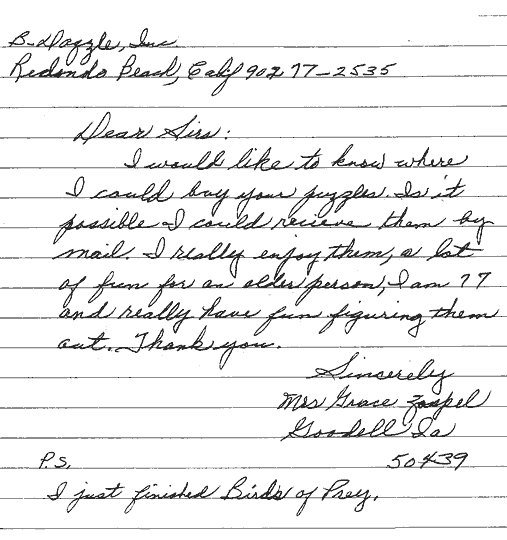 B. Dazzle, Inc.
Redondo Beach, Calif 90277-2535
Dear Sirs:
I would like to know where
I could buy your puzzles. Is it
possible I could recieve them by
mail. I really enjoy them, a lot
of fun for an older person, I am 77
and really have fun figuring them
out. Thank you.
Sincerely
Mrs Grace Zospel
Goodell Ia
50439
P.S.
I just finished Birds of Prey.